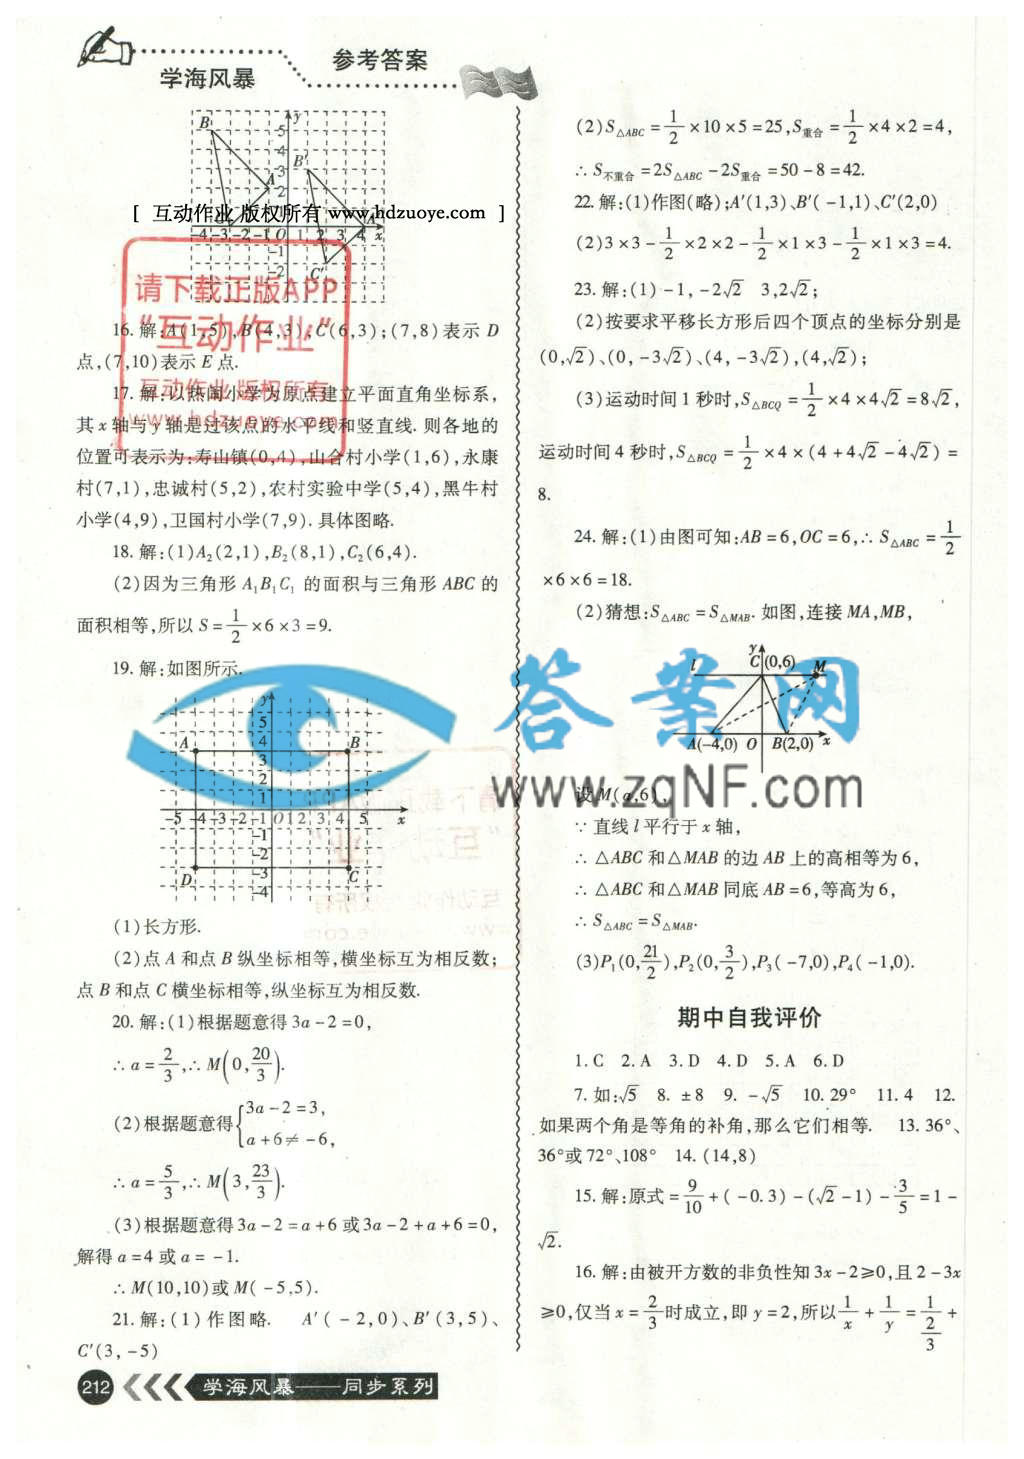 学海风暴
参考答案
B
y
5
4
3
2
B′
A
[ 互动作业 版权所有 www.hdzuoye.com ]
-4 -3 -2 -1 O 1 2 3 4 x
-1
-2
C′
请下载正版APP
“互动作业”
互动作业 版权所有
www.hdzuoye.com
16. 解:A(1,5),B(4,3),C(6,3);(7,8)表示 D
点,(7,10)表示 E 点.
17. 解:以热闹小学为原点建立平面直角坐标系,
其 x 轴与 y 轴是过该点的水平线和竖直线. 则各地的
位置可表示为:寿山镇(0,4),山合村小学(1,6),永康
村(7,1),忠诚村(5,2),农村实验中学(5,4),黑牛村
小学(4,9),卫国村小学(7,9). 具体图略.
18. 解:(1)A₂(2,1),B₂(8,1),C₂(6,4).
(2)因为三角形 A₁B₁C₁ 的面积与三角形 ABC 的
面积相等,所以 S=1/2×6×3=9.
19. 解:如图所示.
y
5
A 4 B
3
2
1
-5 -4 -3 -2 -1 O 1 2 3 4 5 x
-1
-2
D -3 C
-4
(1)长方形.
(2)点 A 和点 B 纵坐标相等,横坐标互为相反数;
点 B 和点 C 横坐标相等,纵坐标互为相反数.
20. 解:(1)根据题意得 3a-2=0,
∴a=2/3,∴M(0,20/3).
(2)根据题意得{3a-2=3,
a+6≠-6,
∴a=5/3,∴M(3,23/3).
(3)根据题意得 3a-2=a+6 或 3a-2+a+6=0,
解得 a=4 或 a=-1.
∴M(10,10)或 M(-5,5).
21. 解:(1)作图略. A′(-2,0)、B′(3,5)、
C′(3,-5)
212 学海风暴——同步系列
(2)S△ABC=1/2×10×5=25,S重合=1/2×4×2=4,
∴S不重合=2S△ABC-2S重合=50-8=42.
22. 解:(1)作图(略);A′(1,3)、B′(-1,1)、C′(2,0)
(2)3×3-1/2×2×2-1/2×1×3-1/2×1×3=4.
23. 解:(1)-1,-2√2 3,2√2;
(2)按要求平移长方形后四个顶点的坐标分别是
(0,√2)、(0,-3√2)、(4,-3√2),(4,√2);
(3)运动时间 1 秒时,S△BCQ=1/2×4×4√2=8√2,
运动时间 4 秒时,S△BCQ=1/2×4×(4+4√2-4√2)=
8.
24. 解:(1)由图可知:AB=6,OC=6,∴S△ABC=1/2
×6×6=18.
(2)猜想:S△ABC=S△MAB. 如图,连接 MA,MB,
y
l C (0,6) M
A(-4,0) O B(2,0) x
答案网
www.zqNF.com
设 M(a,6),
∵直线 l 平行于 x 轴,
∴△ABC 和△MAB 的边 AB 上的高相等为 6,
∴△ABC 和△MAB 同底 AB=6,等高为 6,
∴S△ABC=S△MAB.
(3)P₁(0,21/2),P₂(0,3/2),P₃(-7,0),P₄(-1,0).
期中自我评价
1. C 2. A 3. D 4. D 5. A 6. D
7. 如:√5 8. ±8 9. -√5 10. 29° 11. 4 12.
如果两个角是等角的补角,那么它们相等. 13. 36°、
36°或 72°、108° 14. (14,8)
15. 解:原式=9/10+(-0.3)-(√2-1)-3/5=1-
√2.
16. 解:由被开方数的非负性知 3x-2≥0,且 2-3x
≥0,仅当 x=2/3时成立,即 y=2,所以1/x+1/y=1/(2/3)+